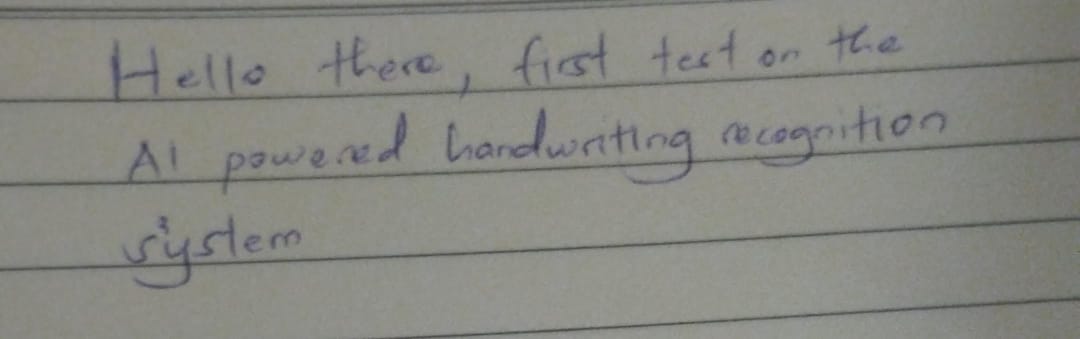 Hello there, first test on the
AI powered handwriting recognition
system